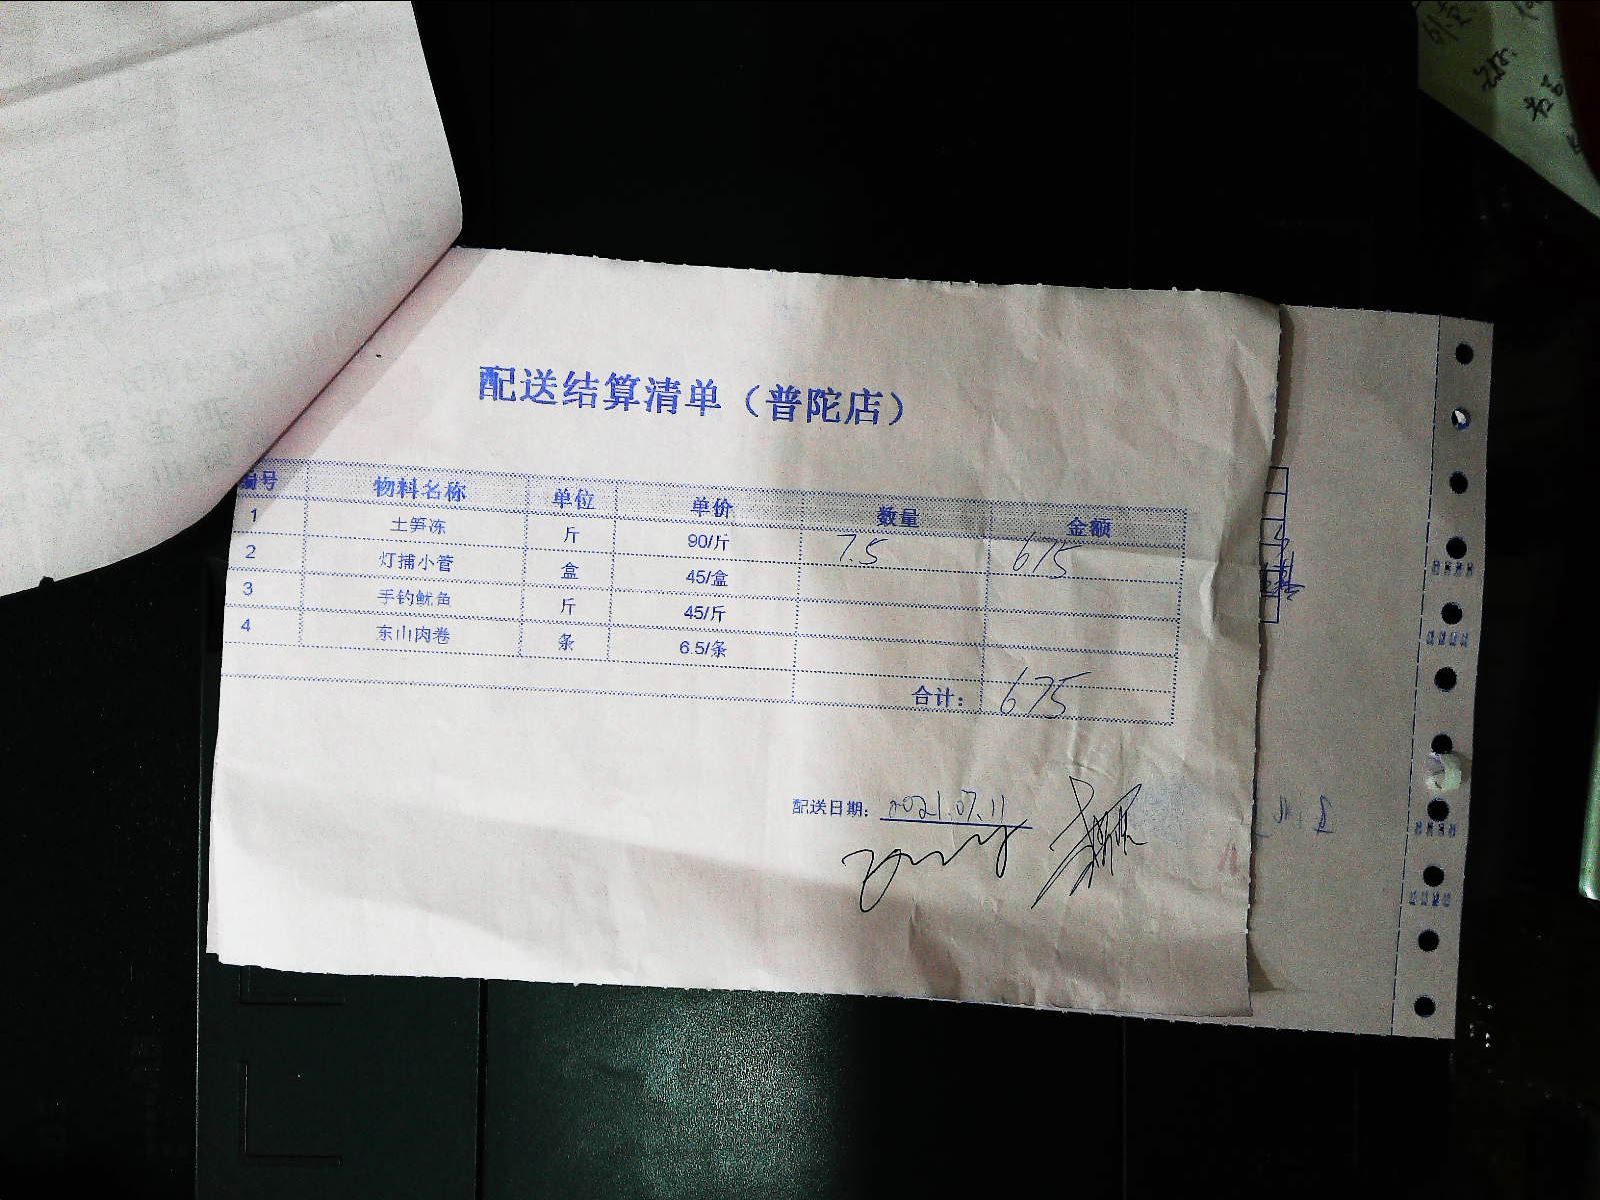 配送结算清单（普陀店）
编号 物料名称 单位 单价 数量 金额
1 土笋冻 斤 90/斤 7.5 675
2 灯捕小管 盒 45/盒
3 手钓鱿鱼 斤 45/斤
4 东山肉卷 条 6.5/条
合计： 675
配送日期： 2021.07.11